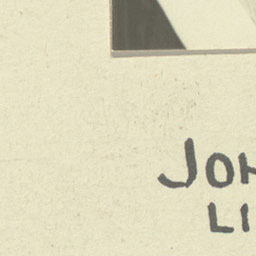 JOH
LI